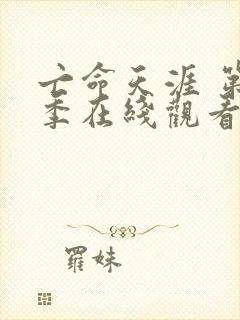 亡命天涯 第
季在綫觀看
羅妹